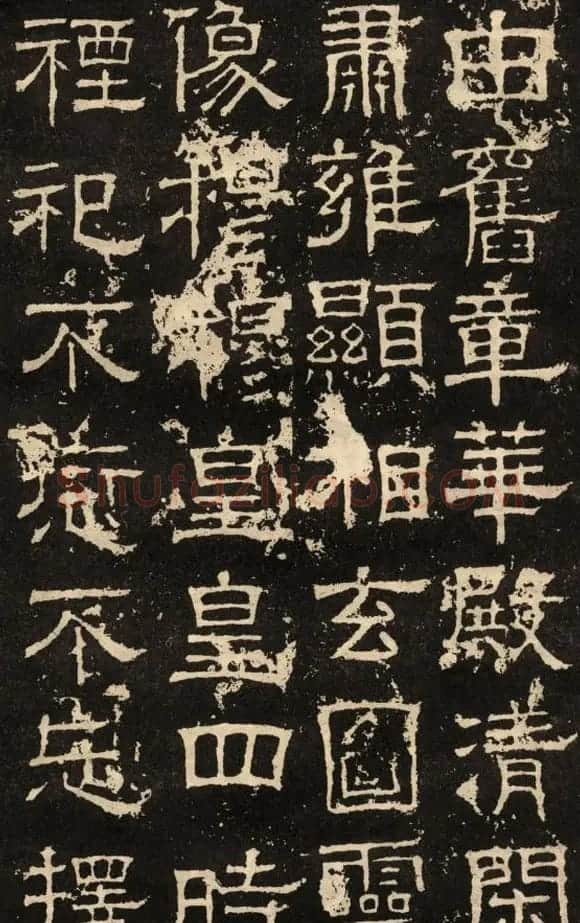 由舊章華殿清閑
肅雍顯相玄圖靈
像穆穆皇皇四時
禋祀不愆不忘擇
Shufaziliao.COM